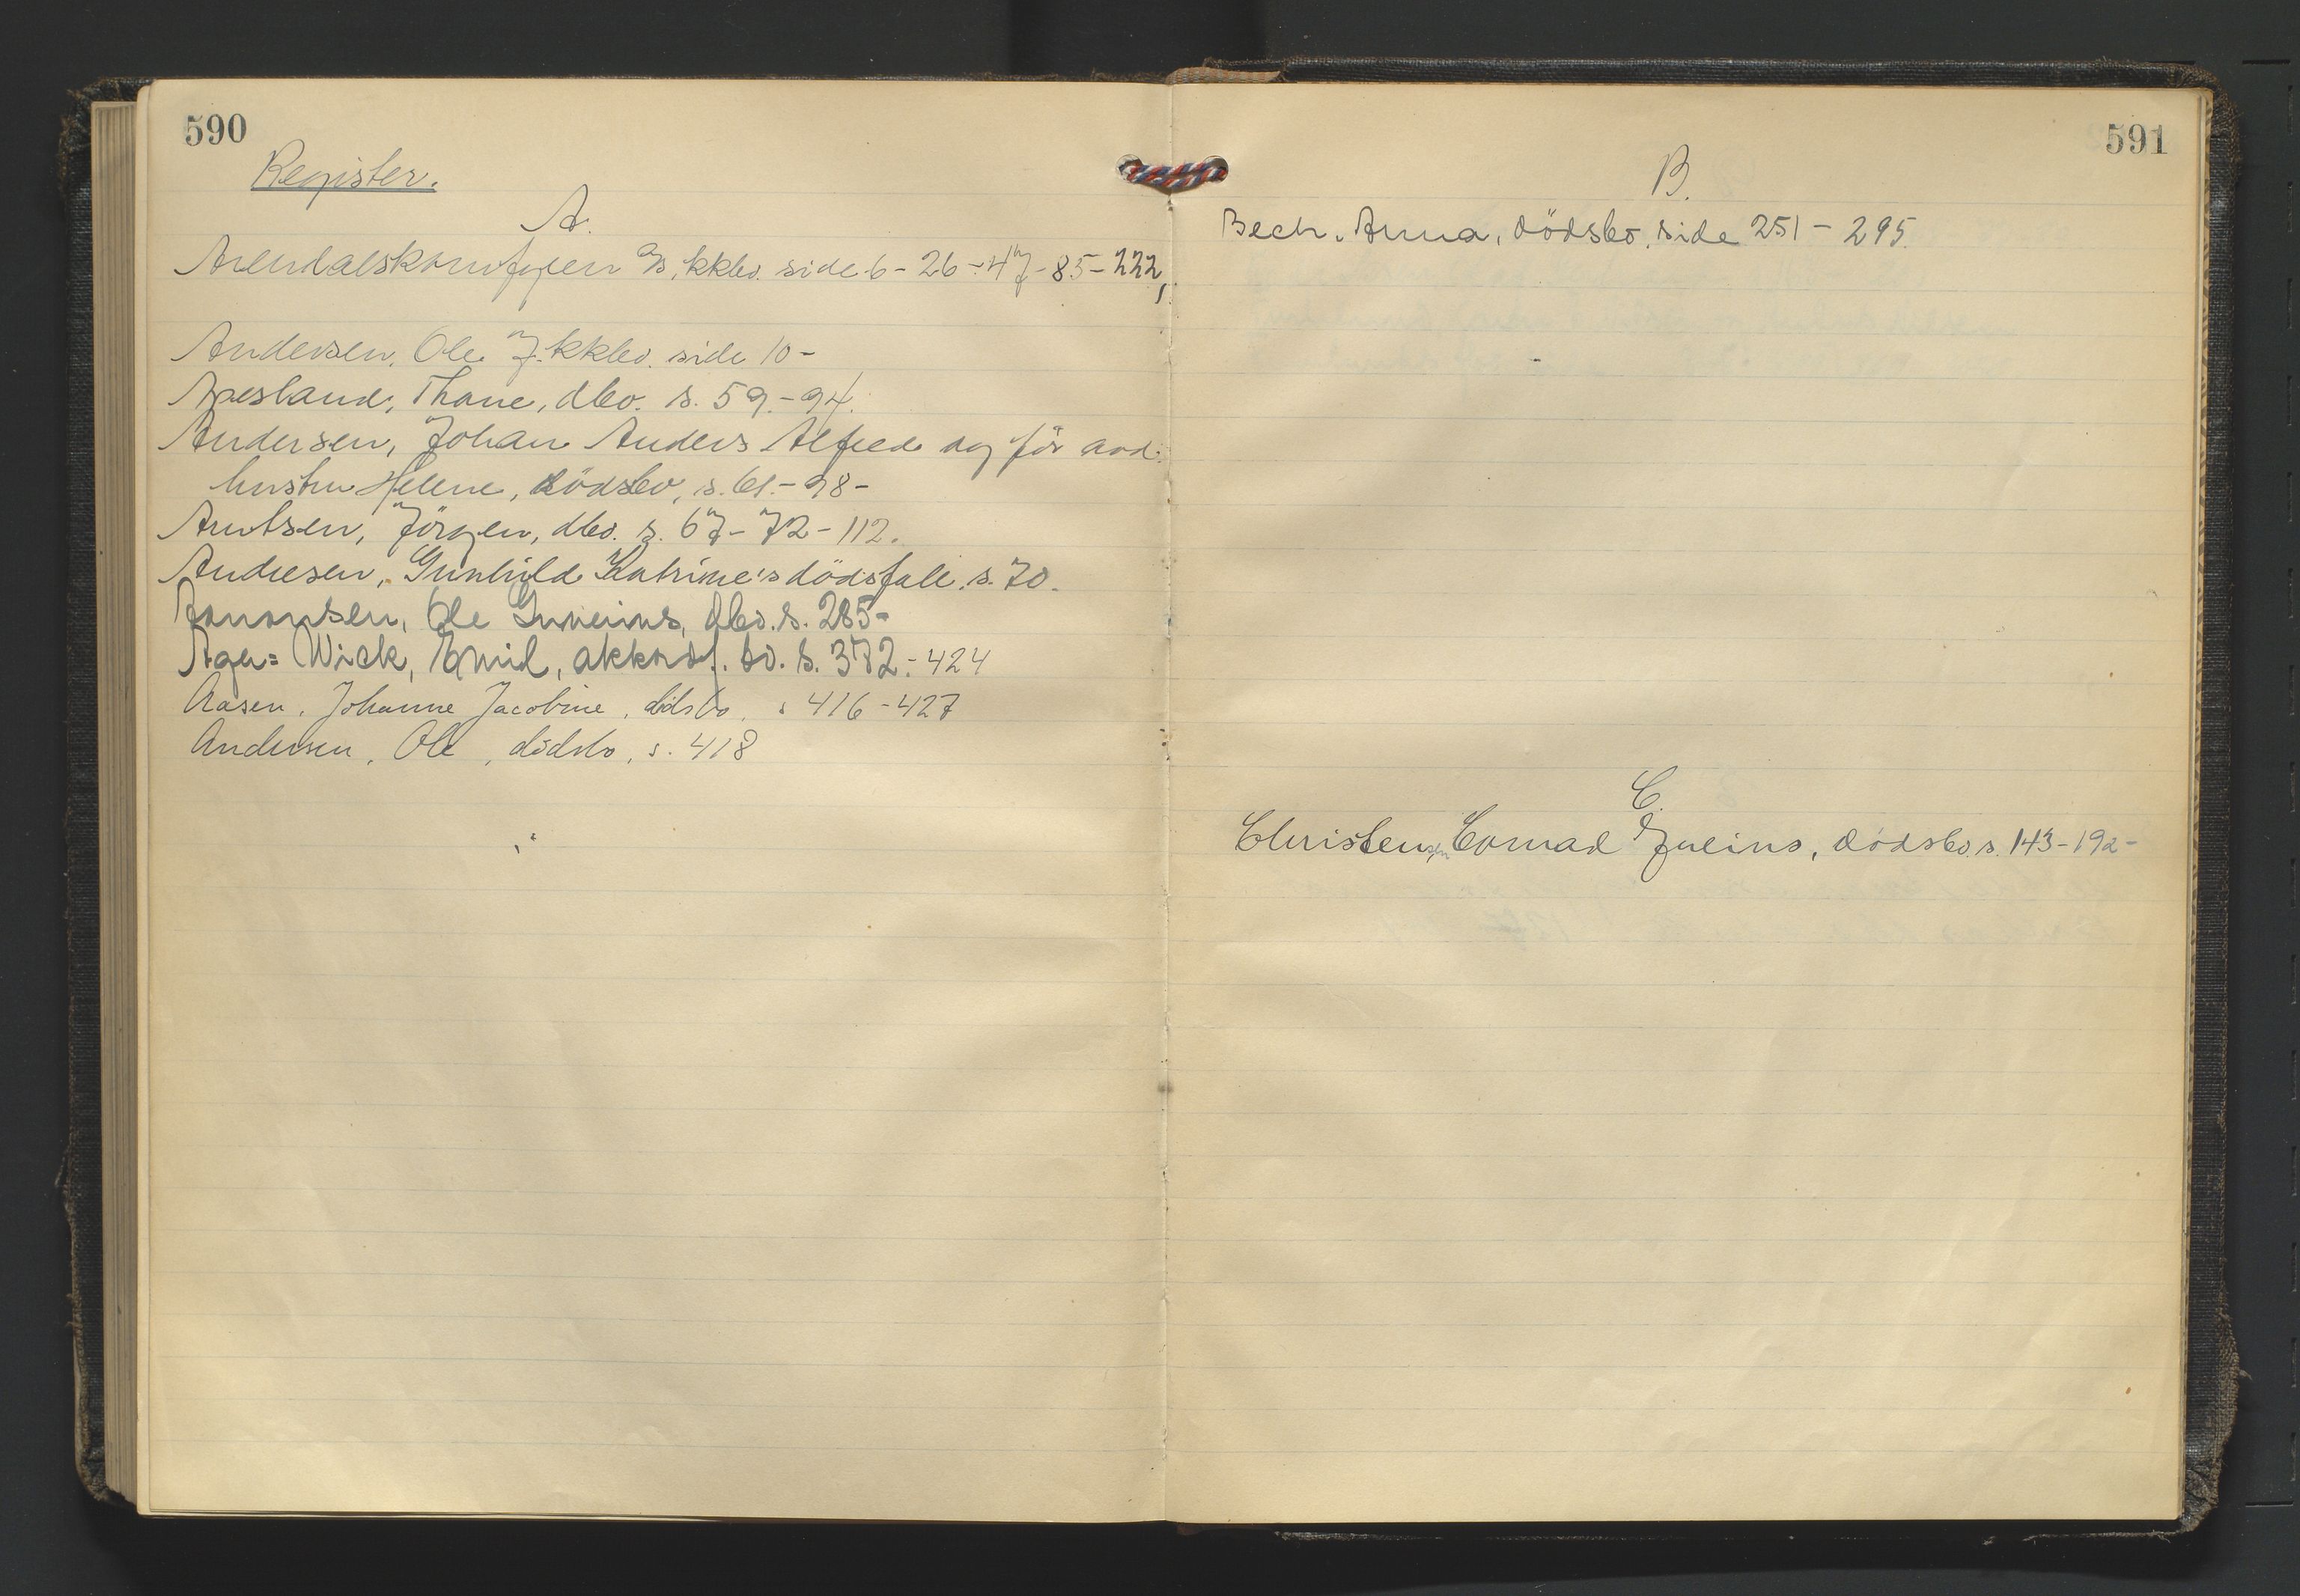 590
Register.
A.
Arendalskomfyren A/S, kkbo. side 6 - 26 - 47 - 85 - 222,
Andersen, Ole J. kkbo. side 10 -
Apesland, Thane, dbo. s. 59 - 94.
Andersen, Johan Anders Alfred og før avd.
hustru Helene, dödsbo, s. 61 - 98 -
Arntsen, Jörgen, dbo. s. 67 - 72 - 112.
Andresen, Gunhild Katrine's dödsfall. s. 70.
Aanonsen, Ole Gunerius, dbo. s. 285 -
Wick, Emil, akkordf. bo. s. 372 - 424
Aasen, Johanne Jacobine, dödsbo, s 416 - 427
Andersen, Ole, dödsbo, s. 418
591
B.
Bech, Anna, dödsbo, side 251 - 295.
C.
Christensen Conrad Julius, dödsbo. s. 143 - 192 -